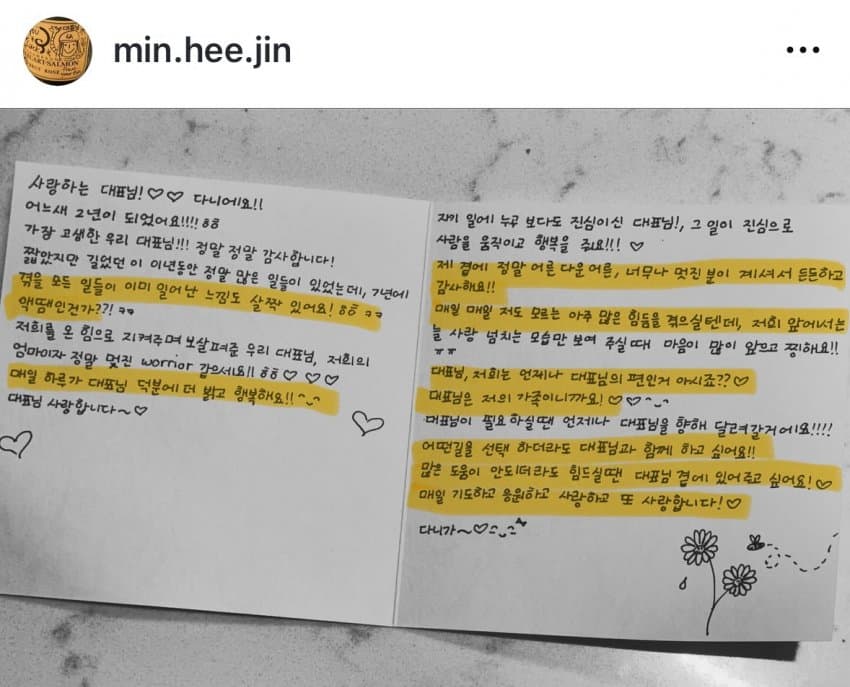 min.hee.jin
사랑하는 대표님!♡♡ 다니에요!!
어느새 2년이 되었어요!!!! ㅎㅎ
가장 고생한 우리 대표님!!! 정말 정말 감사합니다!
짧았지만 길었던 이 이년동안 정말 많은 일들이 있었는데, 7년에
겪을 모든 일들이 이미 일어난 느낌도 살짝 있어요! ㅎㅎ ㅋㅋ
액땜인건가??! ㅋㅋ
저희를 온 힘으로 지켜주며 보살펴준 우리 대표님, 저희의
엄마이자 정말 멋진 worrior 같으세요!! ㅎㅎ♡ ♡ ♡
매일 하루가 대표님 덕분에 더 밝고 행복해요!!
대표님 사랑합니다~♡
자기 일에 누구 보다도 진심이신 대표님!, 그 일이 진심으로
사람을 움직이고 행복을 줘요!!! ♡
제 곁에 정말 어른 다운 어른, 너무나 멋진 분이 계셔서 든든하고
감사해요!!
매일 매일 저도 모르는 아주 많은 힘듦을 겪으실텐데, 저희 앞에서는
늘 사랑 넘치는 모습만 보여 주실때 마음이 많이 앞으고 찡해요!!
ㅠㅠ
대표님, 저희는 언제나 대표님의 편인거 아시죠??♡
대표님은 저의 가족이니까요!♡♡^~^
대표님이 필요하실땐 언제나 대표님을 향해 달려갈거에요!!!!
어떤길을 선택 하더라도 대표님과 함께 하고 싶어요!!
많은 도움이 안되더라도 힘드실땐 대표님 곁에 있어주고 싶어요!♡
매일 기도하고 응원하고 사랑하고 또 사랑합니다!♡
다니가~♡